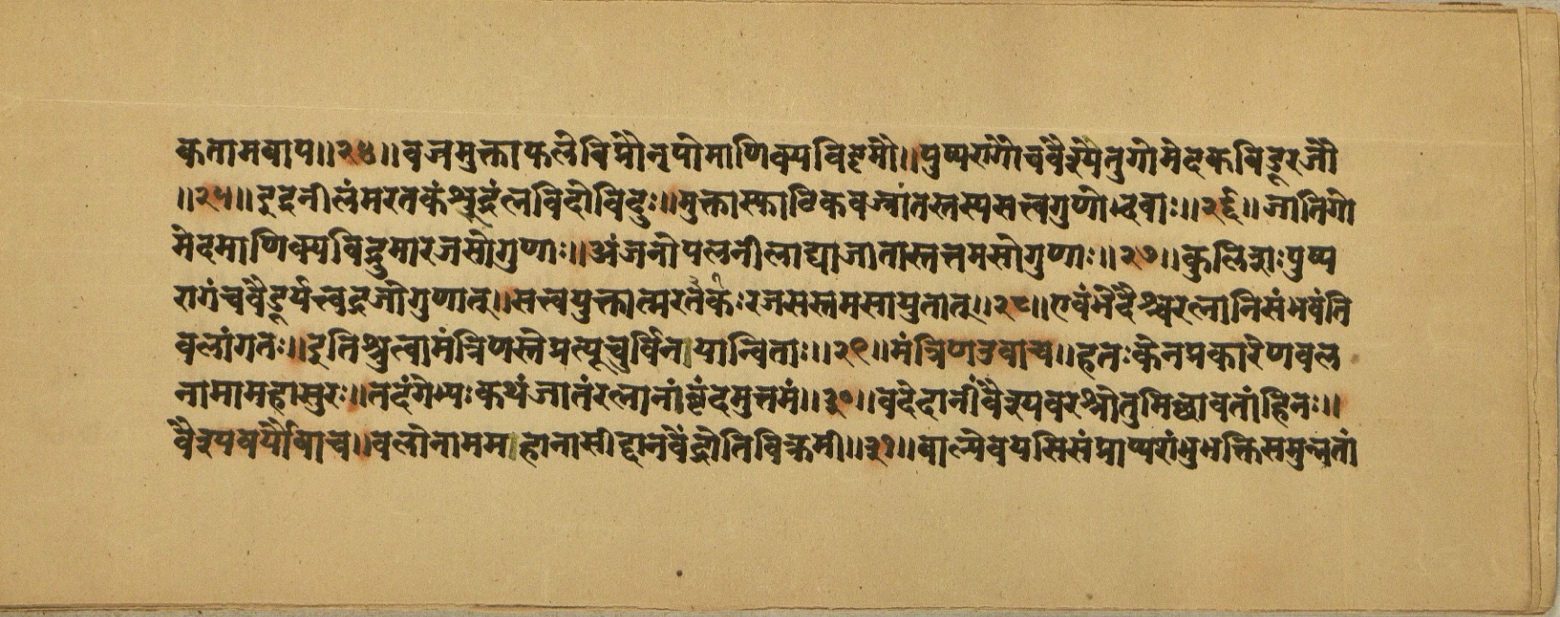 कतामवाप॥२४॥वज्रमुक्ताफलेविप्रौनृपोमाणिक्यविद्रुमौ॥पुष्परागोचवैश्यैतुगोमेदकविडूरजौ
॥२५॥इंद्रनीलंमरतकंश्रुद्रंलविदोविदुः॥मुक्तास्फाटिकवज्रांतस्तस्यसत्त्वगुणोद्भवाः॥२६॥जातिगो
मेदमाणिक्यविद्रुमारजसोगुणाः॥अंजनोपलनीलाद्याजातास्तत्तमसोगुणाः॥२७॥कुलिशःपुष्प
रागंचवैडूर्यत्त्वद्रजोगुणात्॥सत्त्वयुक्तात्मरतेकः रजसस्तमसायुतात्॥२८॥एवंभेदैश्चरत्नानिसंभवंति
वलांगतः॥इतिश्रुत्वामंत्रिणस्तेप्रत्यूचुर्विनयान्विताः॥२९॥मंत्रिणउवाच॥हतःकेनप्रकारेणवल
नामामहासुरः॥तदंगेभ्यःकथंजातंरत्नानांवृंदमुत्तमं॥३०॥वदेदानींवैश्यवरश्रोतुमिच्छावतांहिनः॥
वैश्यवर्योवाच॥वलोनाममहानासीद्दानवेंद्रोतिविक्रमी॥३१॥बाल्येवयसिसंप्राप्यशंभुभक्तिसमुन्नतां